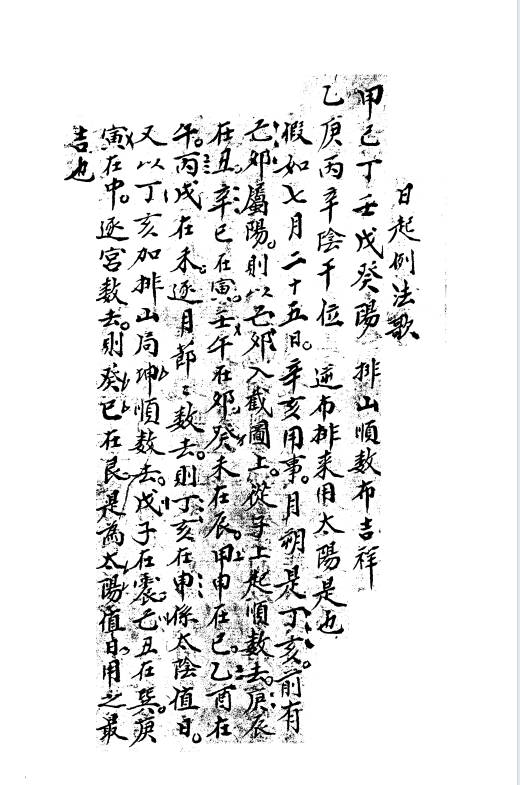 日起例法歌
甲己丁壬戊癸陽　排山順數布吉祥
乙庚丙辛陰干位　逆布排來用太陽是也
假如七月二十五日。辛亥用事。月朔是丁亥。前有
己卯屬陽。則以己卯入截圖上。從子上起順數去。庚辰
在丑。辛巳在寅。壬午在卯。癸未在辰。甲申在巳。乙酉在
午。丙戌在未。逐月節々數去。則丁亥在申係太陰值日。
又以丁亥加排山局坤順數去。戊子在震。己丑在巽。庚
寅在中。逐宮數去。則癸巳在艮。是為太陽值日。用之最
吉也